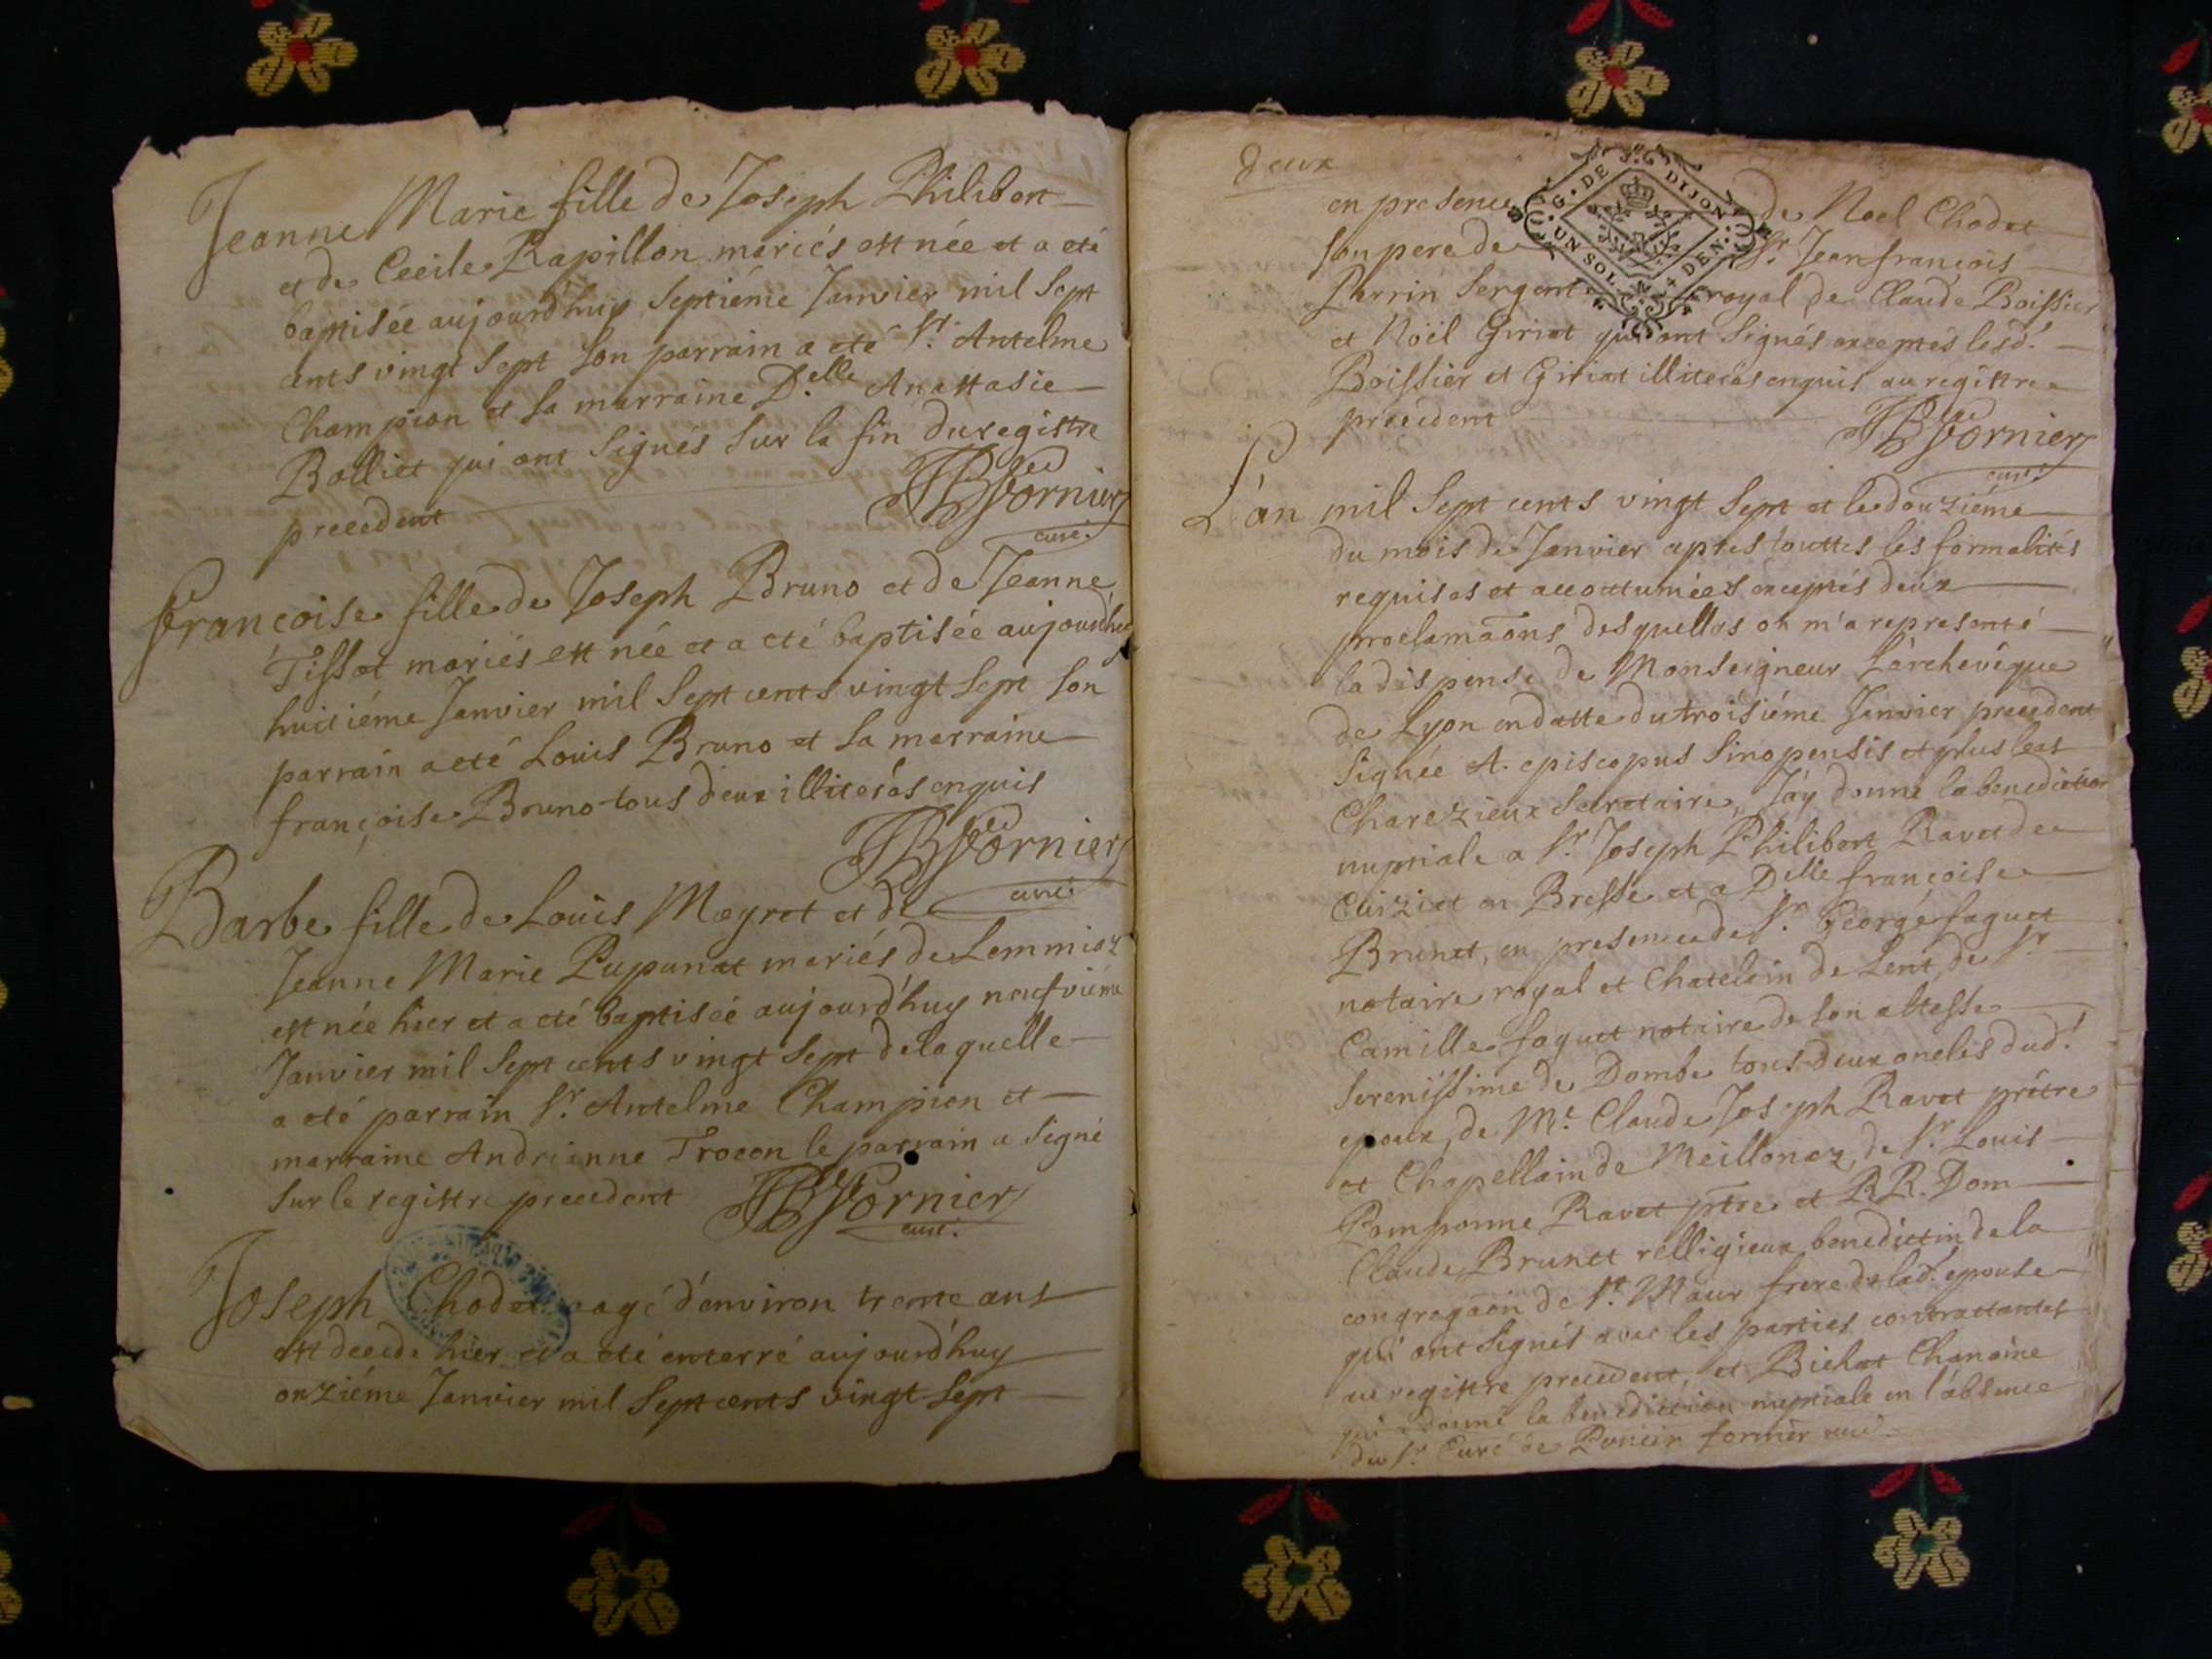 Jeanne Marie fille de Joseph Philibert
et de Cecile Rapillon mariés est née et a eté
baptisée aujourd'huy septiéme Janvier mil sept
cents vingt sept son parrain a eté Sr. Antelme
Champion et sa marraine D.elle Anastasie
Bolliet qui ont signés sur la fin du registre
precedent
JB Fornier
curé.
Françoise fille de Joseph Bruno et de Jeanne
Tissot mariés est née et a eté baptisée aujourd'huy
huitiéme Janvier mil sept cents vingt sept son
parrain a eté Louis Bruno et sa marraine
françoise Bruno tous deux illiterés enquis
JB Fornier
curé.
Barbe fille de Louis Meyret et de
Jeanne Marie Pupunat mariés de Lommiaz
est née hier et a eté baptisée aujourd'huy neufviéme
Janvier mil sept cents vingt sept de laquelle
a eté parrain Sr. Antelme Champion et
marraine Andrianne Trocon le parrain a signé
sur le registre precedent
JB Fornier
curé.
Joseph Chodet agé d'environ trente ans
est decede hier et a eté enterré aujourd'huy
onziéme Janvier mil sept cents vingt sept
deux
G. DE DIJON
UN SOL 4 DEN.
en presence de Noel Chodet
son pere de Sr. Jean françois
Perrin sergent royal de Claude Boissier
et Noël Giriat qui ont signés exceptés lesd.
Boissier et Giriat illiterés enquis au registre
precedent
JB Fornier
curé.
L'an mil sept cents vingt sept et le douziéme
du mois de Janvier apres touttes les formalités
requises et accoutumées exceptés deux
proclamaõns desquelles on m'a representé
la dispense de Monseigneur L'àrchevêque
de Lyon en datte du troisiéme Janvier precedent
signée A. episcopus Sinopensis et plus bas
Charezieux secretaire, J'ay donné la benediction
nuptiale a Sr. Joseph Philibert Ravet de
Cuiziat en Bresse et a Delle françoise
Brunet, en presence de Sr. George faguet
notaire royal et Chatelain de Lent, de Sr
Camille faguet notaire de son altesse
serenissime de Dombe tous deux oncles dud.t
epoux, de Mre. Claude Joseph Ravet prêtre
et Chapellain de Meillonaz, de Sr. Louis
Pomponne Ravet ptre et R.R. Dom
Claude Brunet relligieux benedictin de la
congregaõn de St. Maur frere de lad. epouse
qui ont signés avec les parties contractantes
au registre precedent, et Bichat Chanoine
qui a donné la benediction nuptiale en l'absence
du Sr. Curé de Poncin fornier curé.